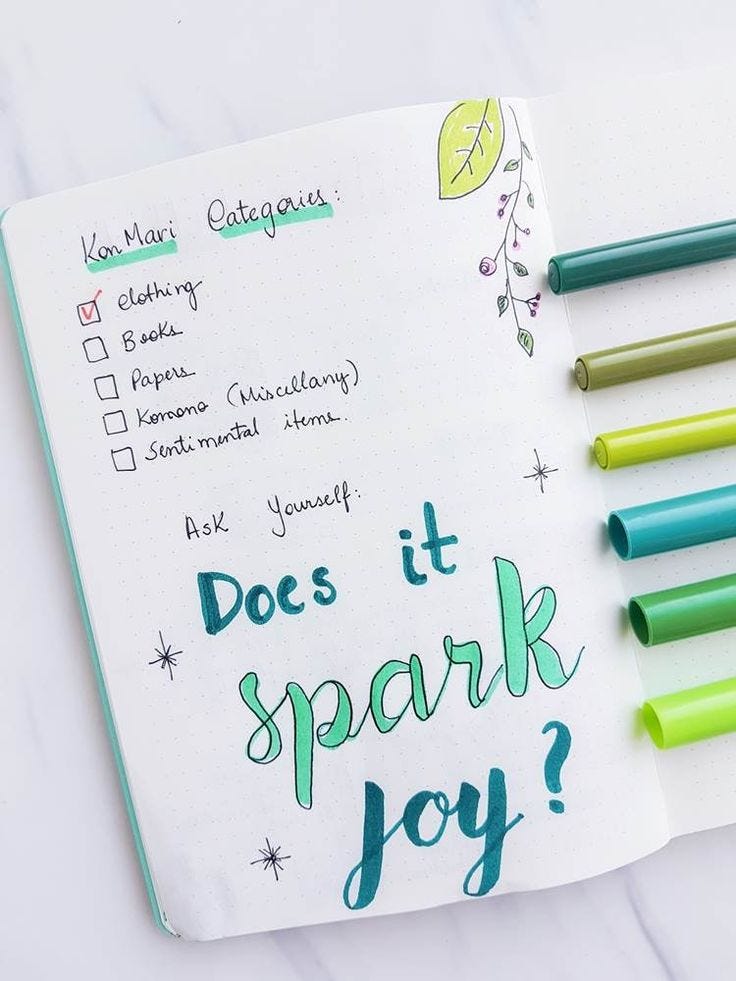 KonMari Categories:
clothing
Books
Papers
Komono (Miscellany)
Sentimental items.
Ask Yourself:
Does it
spark
joy?